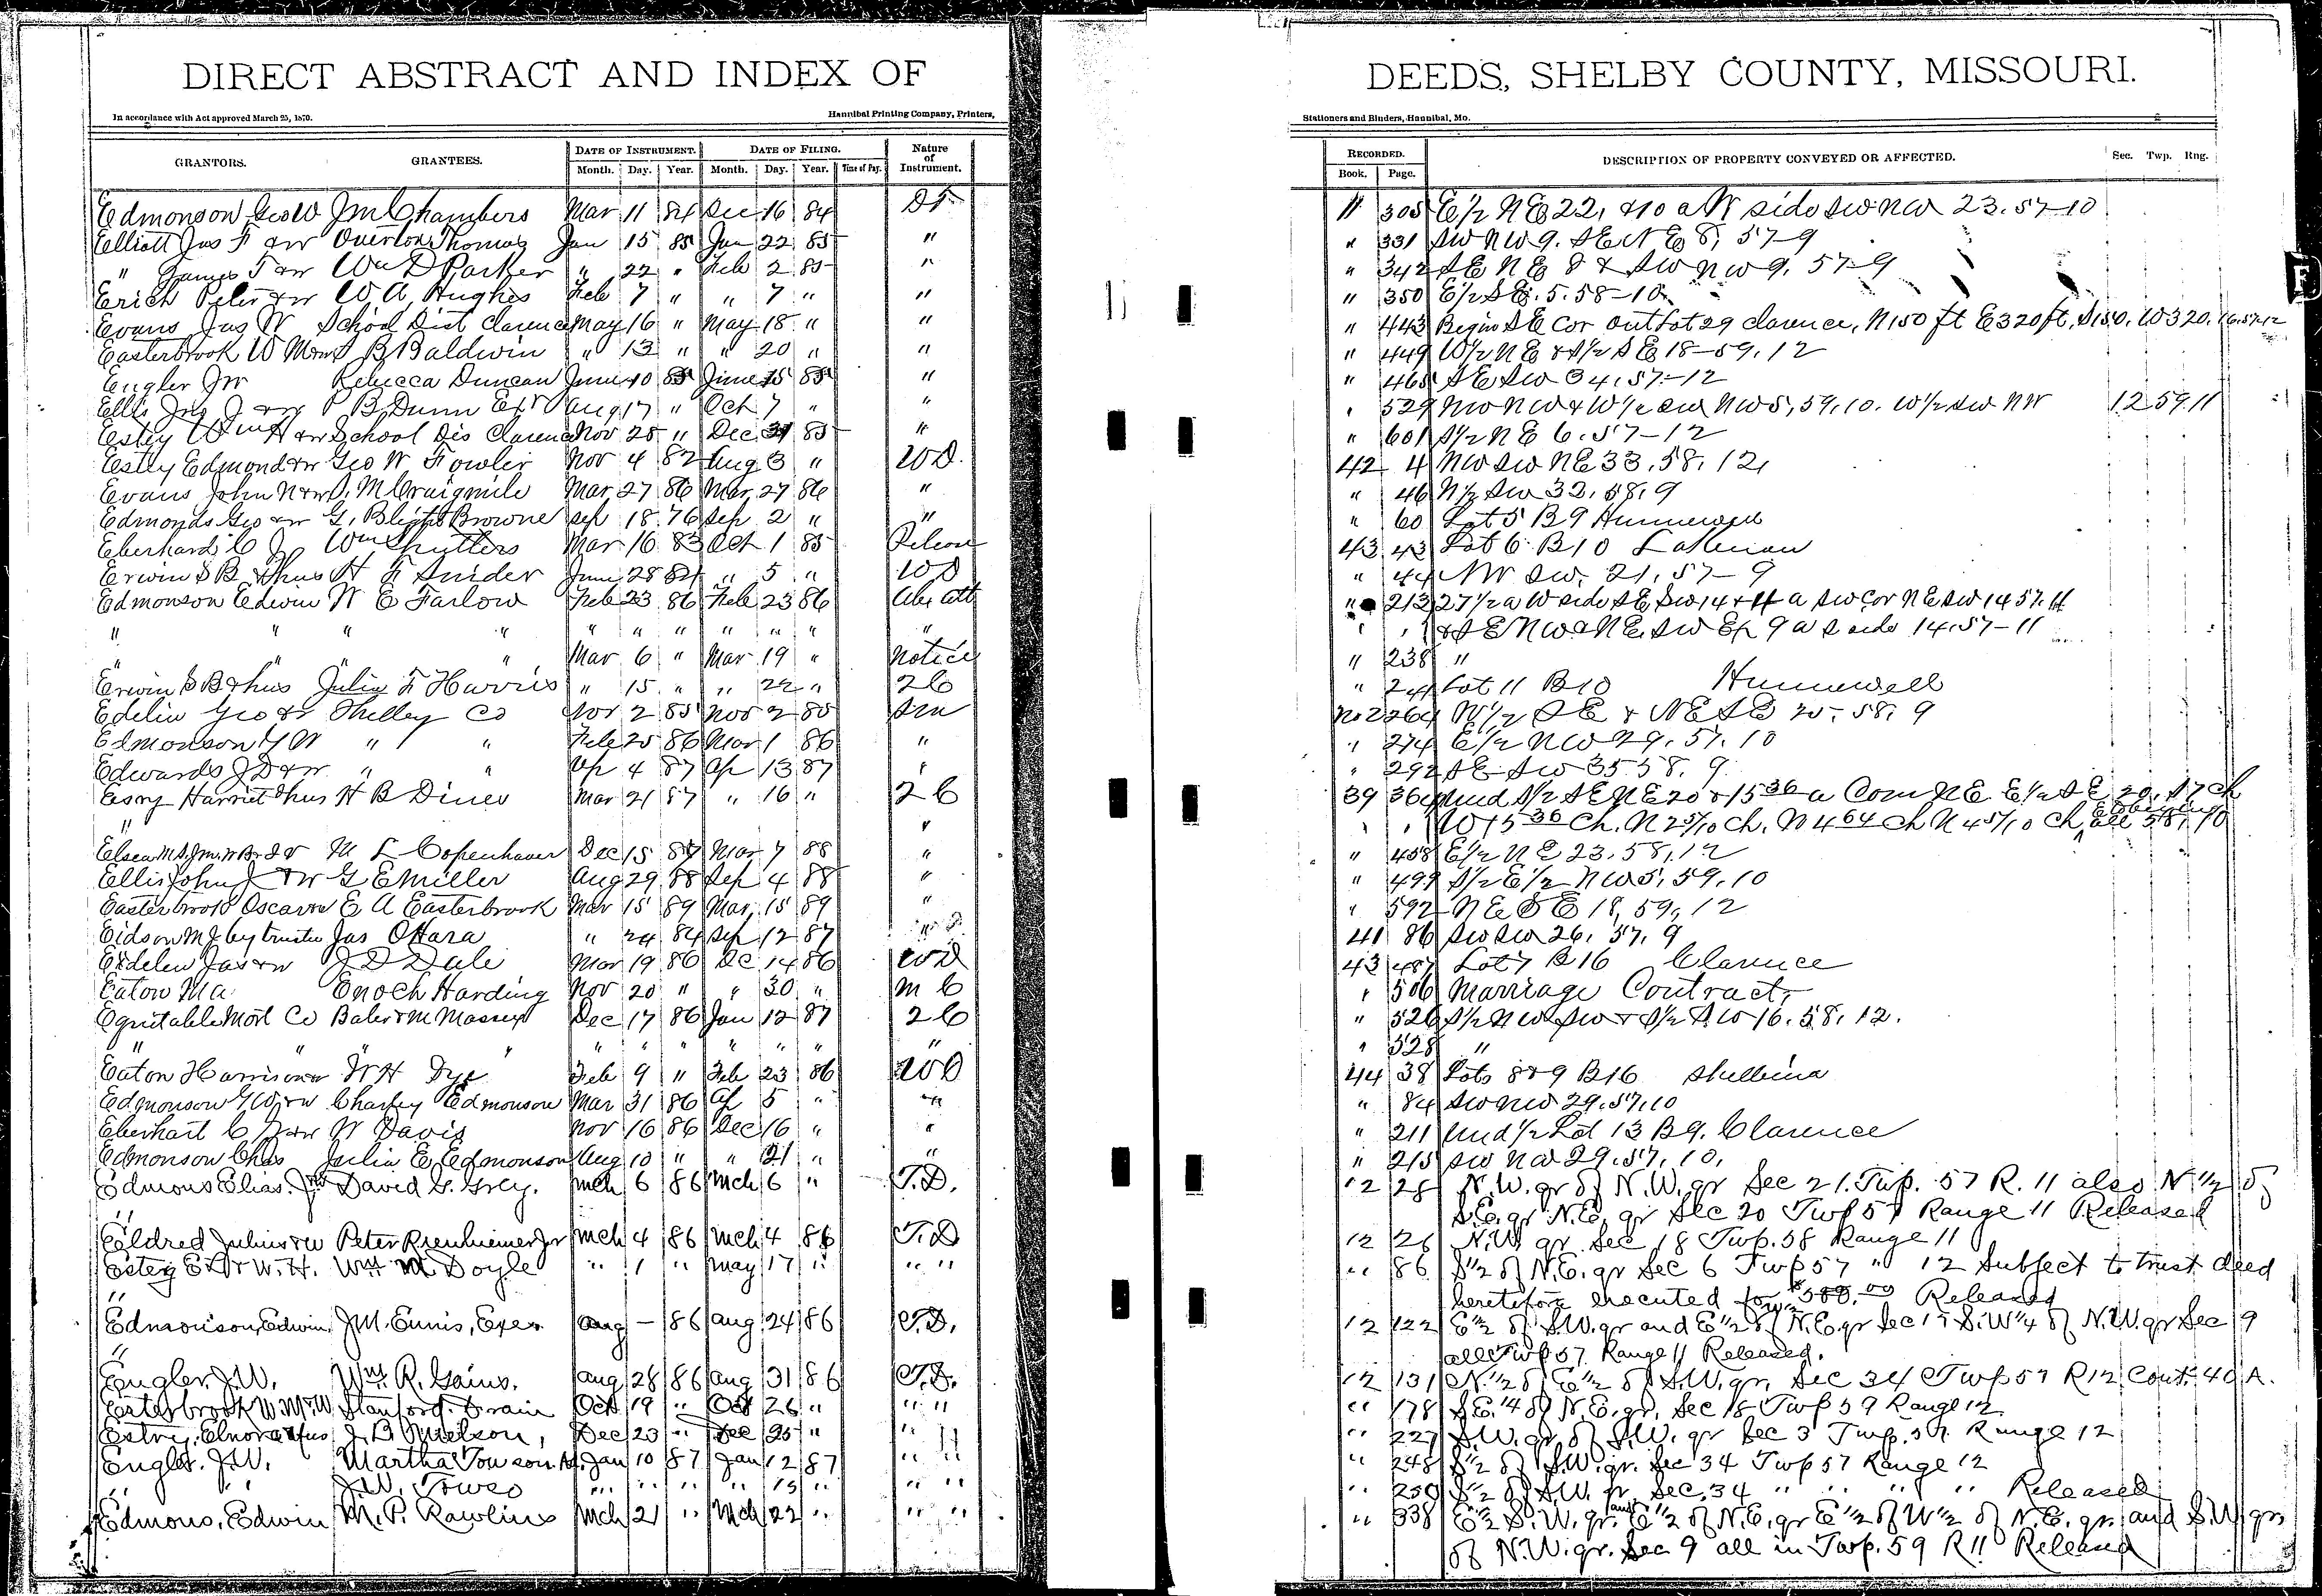 DIRECT ABSTRACT AND INDEX OF
In accordance with Act approved March 25, 1870.
Hannibal Printing Company, Printers,
GRANTORS. GRANTEES. DATE OF INSTRUMENT. DATE OF FILING. Nature of Instrument.
Month. Day. Year. Month. Day. Year. Time of Day.
Edmonson Geo W J M Chambers Mar 11 84 Dec 16 84 DT
Elliott Jas F & W Overton Thomas Jan 15 85 Jan 22 85 "
" James F & W Wm D Parker " 22 " Feb 2 85 "
Erich Peter & W W A Hughes Feb 7 " " 7 " "
Evans Jas W School Dist Clarence May 16 " May 18 " "
Easterbrook W M & W B Baldwin " 13 " " 20 " "
Engler J W Rebecca Duncan June 10 85 June 15 85 "
Ellis Jno J & W P B Dunn Exr Aug 17 " Oct 7 " "
Estey Wm H & W School Dis Clarence Nov 25 " Dec 31 85 "
Estly Edmond & W Geo W Fowler Nov 4 82 Aug 3 " W D.
Evans John N & W J. M Craigmile Mar 27 86 Mar 27 86 "
Edmonds Geo & W G. Blight Browne Sep 18 76 Sep 2 " "
Eberhard C J Wm Shutters Mar 16 83 Oct 1 85 Release
Erwin S B & hus H F Snider June 28 84 " 5 " W D
Edmonson Edwin W E Farlow Feb 23 86 Feb 23 86 Abs att
" " " " " " " " " " "
" " " Mar 6 " Mar 19 " Notice
Erwin S B & hus Julia F Harris " 15 " " 22 " 2 C
Edelin Geo & W Shelby Co Nov 2 85 Nov 2 85 Sm
Edmonson G W " " Feb 25 86 Mar 1 86 "
Edwards J D & W " " Ap 4 87 Ap 13 87 "
Esry Harriet & hus H B Diner Mar 21 87 " 16 " 2 C
" "
M L Copenhaver Dec 15 87 Mar 7 88 "
Ellis John J & W G E Miller Aug 29 88 Sep 4 88 "
Easterbrook Oscar & W E A Easterbrook Mar 15 89 Mar 15 89 "
Eidson M J by trustee Jas OHara " 24 84 Sep 12 87 "
Edelen Jas & W J D Dale Mar 19 86 Dc 14 86 W D
Eaton M A Enoch Harding Nov 20 " " 30 " M C
Equitable Mort Co Baler & M Massey Dec 17 86 Jan 12 87 2 C
" " " " " " " " " " "
Eaton Harrison & W W H Dye Feb 9 " Feb 23 86 W D
Edmonson G W & W Charley Edmonson Mar 31 86 Ap 5 " "
Eberhart C J & W W Davis Nov 16 86 Dec 16 " "
Edmonson Chas Julia E Edmonson Aug 10 " " 21 " "
Edmons Elias. David G. Grey. Mch 6 86 Mch 6 " T. D.
"
Eildred Julius & W Peter Rienhiemer Jr Mch 4 86 Mch 4 86 T. D
Estey W. H. Wm M. Doyle " 1 " May 17 " " "
"
Edmonson, Edwin J. M. Ennis, Exer Aug — 86 Aug 24 86 T. D.
"
Engler, J. W. Wm. R. Gains. Aug 28 86 Aug 31 86 T. D.
Esterbrook W. M. & W Stanford Drain Oct 19 " Oct 26 " " "
Estry, Elnora & hus J. B Nuelson, Dec 23 " Dec 25 " " "
Engler. J. W. Martha Towson Jan 10 87 Jan 12 87 " "
" " J. W. Towso " " " " 15 " " "
Edmons, Edwin M. P. Rawlins Mch 21 " Mch 22 " " "
DEEDS, SHELBY COUNTY, MISSOURI.
Stationers and Binders, Hannibal, Mo.
RECORDED. DESCRIPTION OF PROPERTY CONVEYED OR AFFECTED. Sec. Twp. Rng.
Book. Page.
11 305 E 1/2 N E 22, & 10 a W side SW NW 23. 57–10
" 331 SW NW 9. S E N E 8, 57–9
" 342 S E N E 8 & SW NW 9, 57–9
" 350 E 1/2 S E. 5. 58–10
" 443 Begin S E Cor out Lot 29 Clarence, N 150 ft E 320 ft, S 150, W 320, 16.57.12
" 449 W 1/2 N E & S 1/2 S E 18–59. 12
" 465 S E SW 34, 57–12
" 529 NW NW & W 1/2 SW NW 5, 59, 10. W 1/2 SW NW 12 59 11
" 601 S 1/2 N E 6. 57–12
42 4 NW SW NE 33, 58, 12,
" 46 N 1/2 SW 32, 58, 9
" 60 Lot 5 B 9 Hunnewell
43 43 Lot 6 B 10 Lakenan
" 44 NW SW. 21, 57–9
" 213 27 1/2 a W side S E SW 14 & 4 a SW cor N E SW 14 57. 11
" " & S E NW & N E SW Ex 9 a S side 14. 57–11
" 238 "
" 241 Lot 11 B 10 Hunnewell
No 2 264 W 1/2 S E & N E S E 25, 58, 9
" 274 E 1/2 NW 29, 57, 10
" 292 S E SW 35 58, 9
39 364 und S 1/2 S E N E 20 & 15 36 a Com N E E 1/2 S E 20, S 7 ch
" " W 15 36 Ch. N 2 5/10 ch, N 4 64 ch N 4 5/10 ch, all 58, 10
" 458 E 1/2 N E 23, 58, 12
" 499 S 1/2 E 1/2 NW 5, 59, 10
" 592 N E S E 18, 59, 12
41 86 SW SW 26, 57, 9
43 487 Lot 7 B 16 Clarence
" 506 Marriage Contract
" 526 S 1/2 NW SW & S 1/2 SW 16. 58, 12.
" 528 "
44 38 Lots 8 & 9 B 16 Shelbina
" 84 SW NW 29. 57. 10
" 211 und 1/2 Lot 13 B 9. Clarence
" 215 SW NW 29. 57, 10,
12 28 N. W. qr of N. W. qr Sec 21. Twp. 57 R. 11 also N 1/2 of
S. E. qr N. E. qr Sec 20 Twp 57 Range 11 Released
12 26 N. W. qr Sec 18 Twp. 58 Range 11
" 86 S 1/2 of N. E. qr Sec 6 Twp 57 " 12 Subject to trust deed
heretofore executed for $500.00 Released
12 122 E 1/2 of S. W. qr and E 1/2 of N. E. qr Sec 17 S. W 1/4 of N. W. qr Sec 9
all Twp 57 Range 11 Released.
12 131 N. 1/2 of E 1/2 of S. W. qr. Sec 34 Twp 57 R 12 Cont. 40 A.
" 178 S. E. 1/4 of N. E. qr. Sec 18 Twp 59 Range 12
" 227 S. W. qr of S. W. qr Sec 3 Twp. 57. Range 12
" 248 S 1/2 of S. W. qr. Sec 34 Twp 57 Range 12
" 250 S 1/2 of S. W. qr. Sec. 34 " " " " Released
" 338 E 1/2 S. W. qr. and E 1/2 of N. E. qr E 1/2 of W 1/2 of N. E. qr. and S. W qr.
of N. W. qr. Sec 9 all in Twp. 59 R 11 Released
F